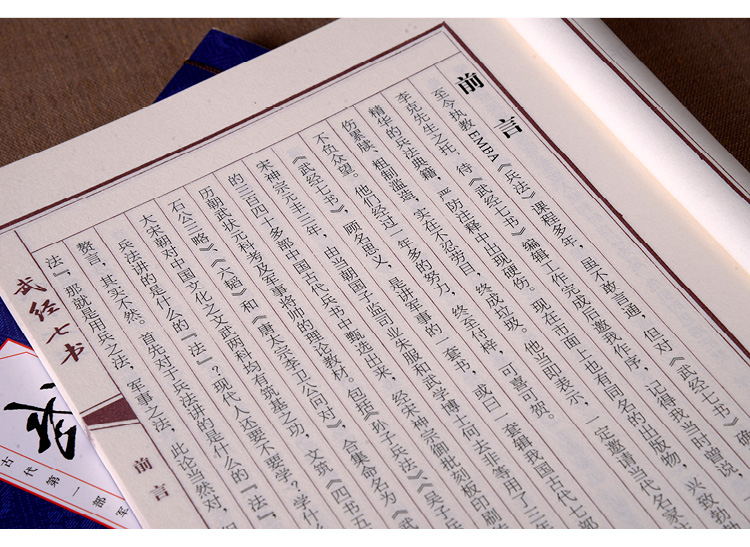 前言
至今执教EMBA《兵法》课程多年，虽不敢言通，但对《武经七书》确
李克先生之托，待《武经七书》编辑工作完成后邀我作序，记得我当时曾说，
精华的兵法典籍，严防注释中出现硬伤。现在市面上也有同名的出版物，兴致勃勃
伤累牍，粗制滥造，实在不忍劳目，终成垃圾。他当即表示，一定邀请当代名家
不负众望。他们经过一年多的努力，终至付梓，可喜可贺。
《武经七书》，顾名思义，是讲军事的一套书，或曰一套辑我国古代七部
宋神宗元丰三年，由当朝国子监司业朱服和武学博士何去非等用了三年
的三百四十多部中国古代兵书中甄选出来，经宋神宗御批刻板印刷
历朝武状元科考及军事将帅的理论教材。包括《孙子兵法》《吴子兵
石公三略》《六韬》和《唐太宗李卫公问对》，合集命名为《武
大宋朝对中国文化之文武两科均有筑基之功，文筑《四书五
兵法讲的是什么的『法』？现代人还要不要学？学什
赘言，其实不然。首先对于兵法讲的是什么的『法』，
法』，那就是用兵之法，军事之法，此论当然对，
武经七书
前言
古代第一部军